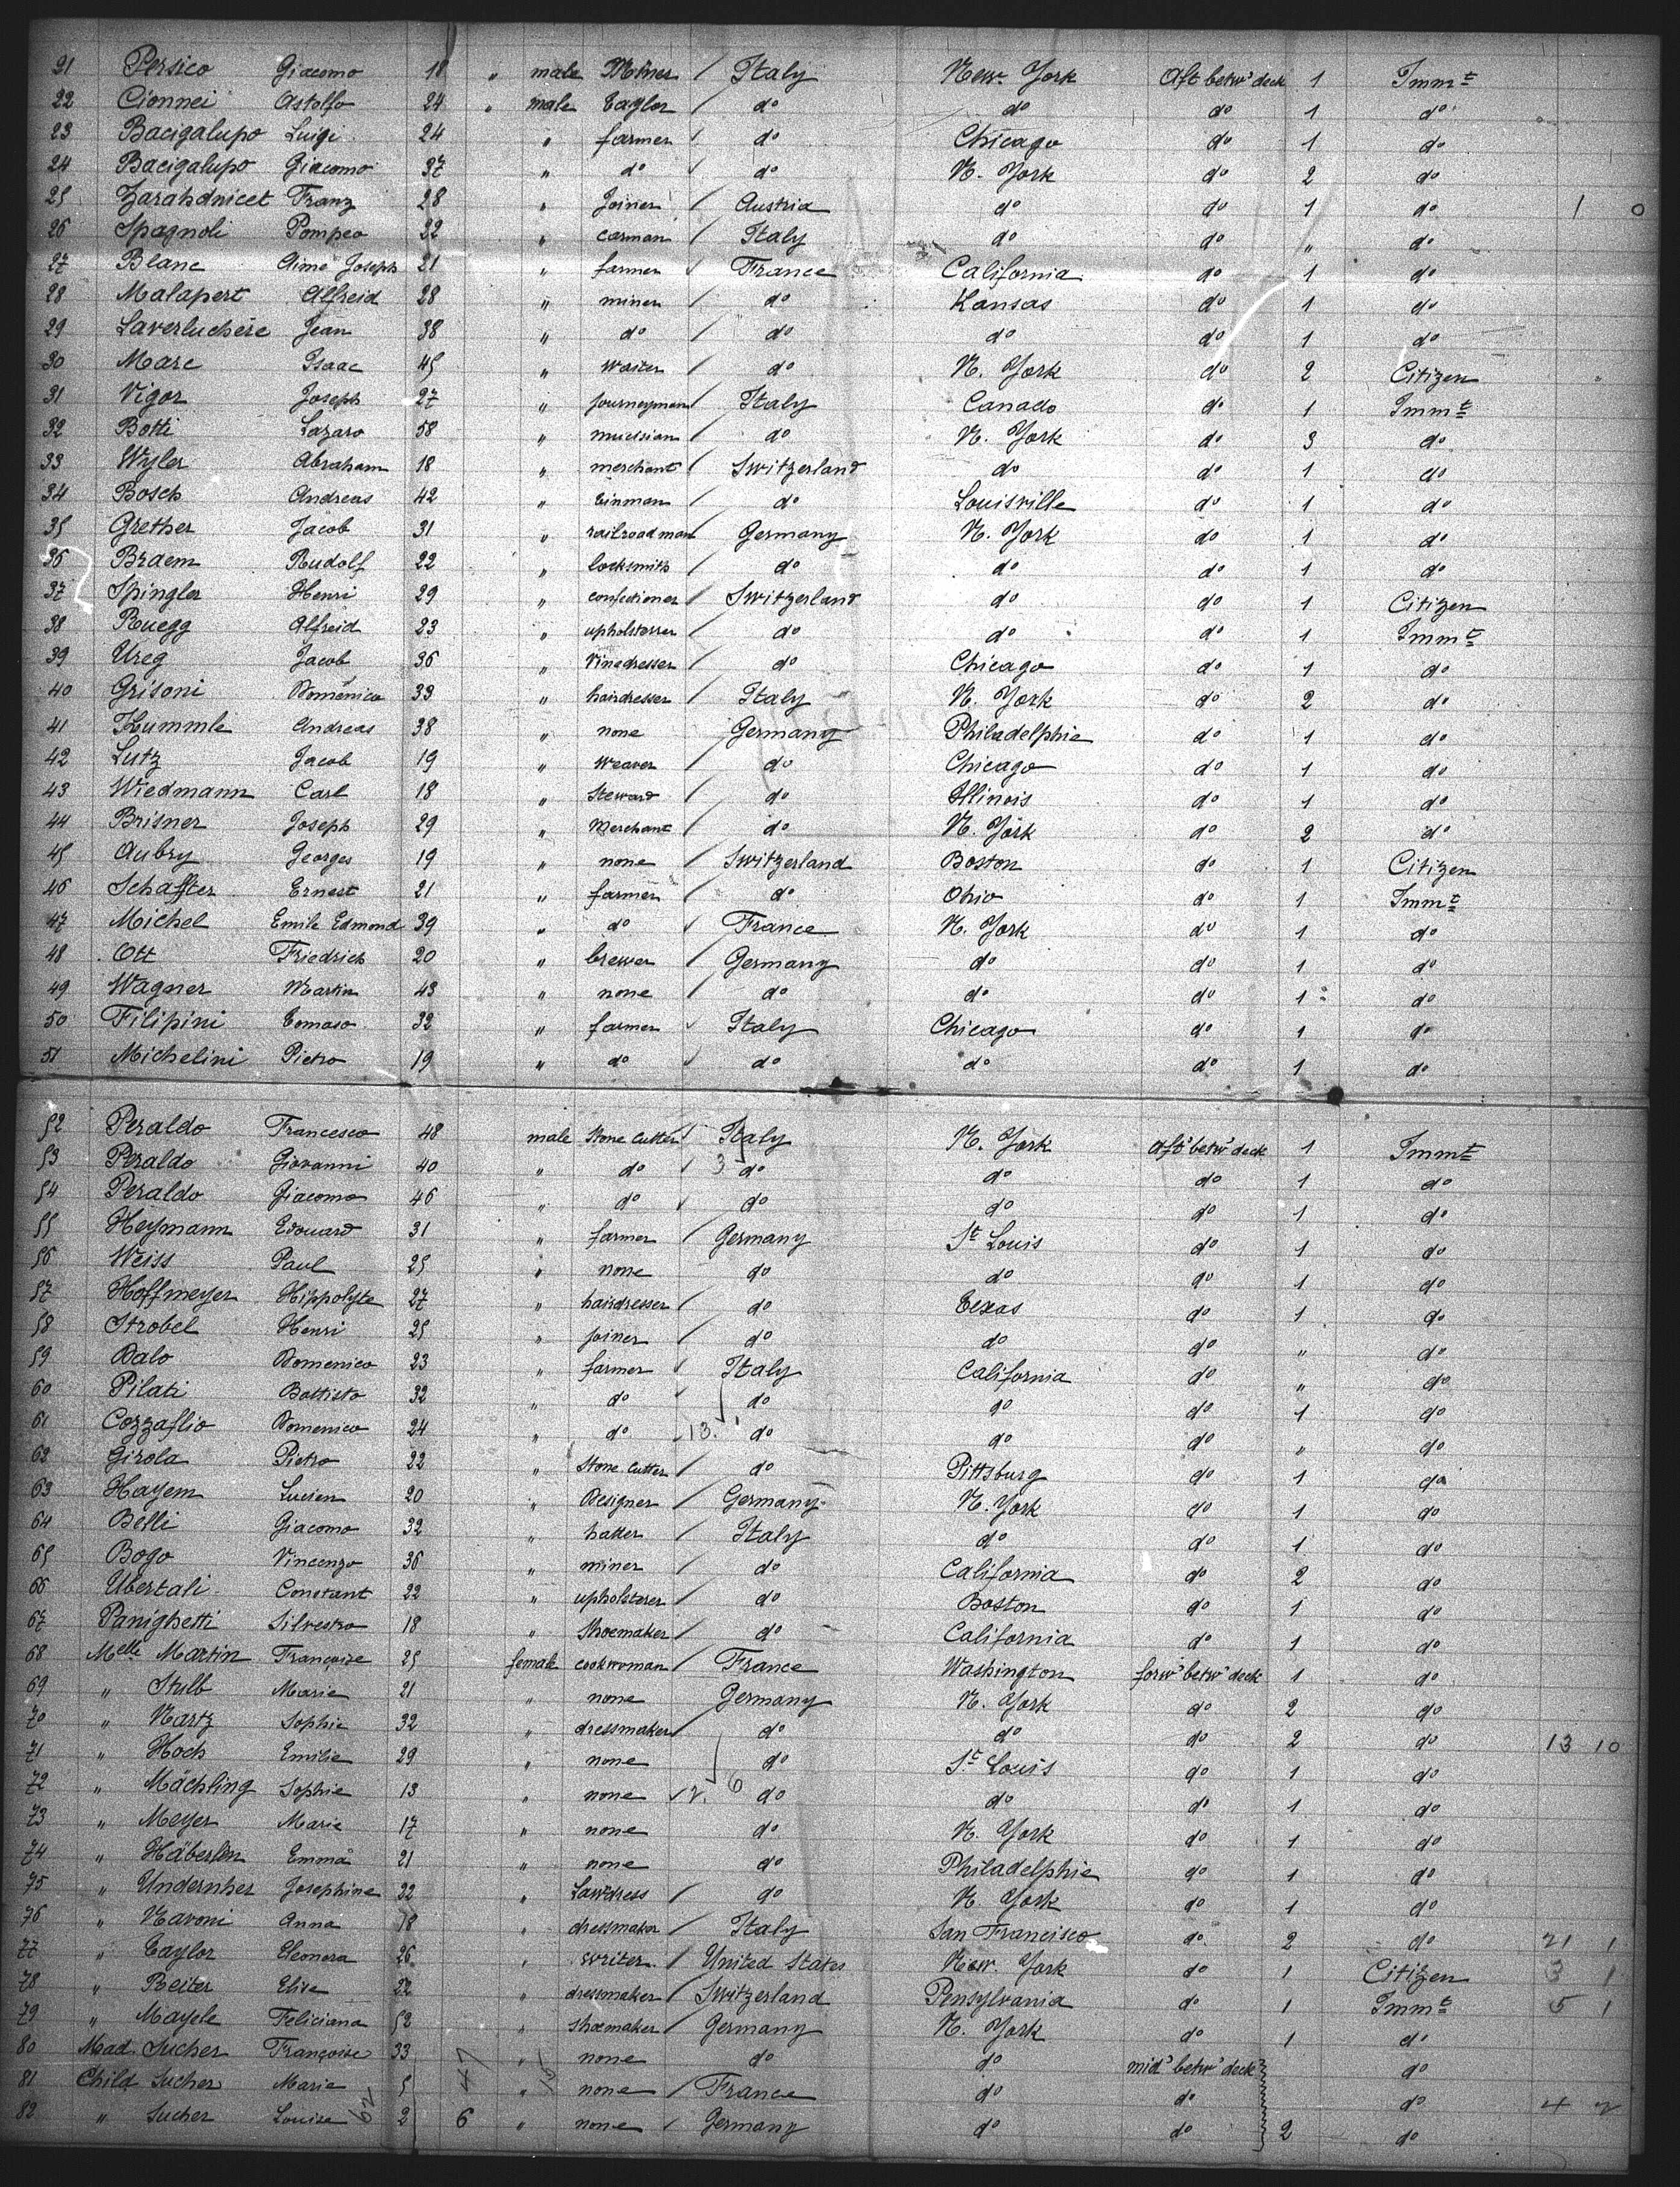 21 Persico Giacomo 18 " male Miner / Italy New York Aft betw deck 1 Immt
22 Cionnei Astolfo 24 " male Taylor / do do do 1 do
23 Bacigalupo Luigi 24 " farmer do Chicago do 1 do
24 Bacigalupo Giacomo 37 " do do N. York do 2 do
25 Zarahdnicet Franz 28 " Joiner / Austria do do 1 do 1 0
26 Spagnoli Pompeo 22 " carman / Italy do do " do
27 Blanc Aimé Joseph 21 " farmer France California do 1 do
28 Malapert Alfreid 28 " miner / do Kansas do 1 do
29 Laverluchère Jean 38 " do / do do do 1 do
30 Marc Isaac 45 " Waiter / do N. York do 2 Citizen
31 Vigor Joseph 27 " Journeyman / Italy Canado do 1 Immt
32 Botti Lazaro 58 " mucisian / do N. York do 3 do
33 Wyler Abraham 18 " merchant / Switzerland do do 1 do
34 Bosch Andreas 42 " Tinman / do Louisville do 1 do
35 Grether Jacob 31 " railroadman Germany N. York do 1 do
36 Braem Rudolf 22 " locksmith / do do do 1 do
37 Spingler Henri 29 " confectioner / Switzerland do do 1 Citizen
38 Ruegg Alfreid 23 " upholsterer / do do do 1 Immt
39 Ureg Jacob 36 " Vinedresser / do Chicago do 1 do
40 Grisoni Domenico 33 " hairdresser / Italy N. York do 2 do
41 Kummle Andreas 38 " none Germany Philadelphie do 1 do
42 Lutz Jacob 19 " Weaver / do Chicago do 1 do
43 Wiedmann Carl 18 " Steward / do Illinois do 1 do
44 Brisner Joseph 29 " Merchant / do N. York do 2 do
45 Aubry Georges 19 " none / Switzerland Boston do 1 Citizen
46 Schaffter Ernest 21 " farmer / do Ohio do 1 Immt
47 Michel Emile Edmond 39 " do France N. York do 1 do
48 Ott Friedrich 20 " brewer / Germany do do 1 do
49 Wagner Martin 43 " none / do do do 1 do
50 Filipini Tomaso 32 " farmer Italy Chicago do 1 do
51 Michelini Pietro 19 " do do do do 1 do
52 Peraldo Francesco 48 male Stone Cutter Italy N. York Aft betw deck 1 Immt
53 Peraldo Giovanni 40 " do 3 do do do 1 do
54 Peraldo Giacomo 46 " do do do do 1 do
55 Heymann Edouard 31 " farmer / Germany St Louis do 1 do
56 Weiss Paul 25 " none do do do 1 do
57 Hoffmeyer Hippolyte 27 " hairdresser / do Texas do 1 do
58 Strobel Henri 25 " joiner / do do do " do
59 Dalo Domenico 23 " farmer Italy California do " do
60 Pilati Battista 32 " do do do do 1 do
61 Cozzaflio Domenico 24 " do 13. do do do " do
62 Girola Pietro 22 " Stone Cutter / do Pittsburg do 1 do
63 Hayem Lucien 20 " Designer / Germany N. York do 1 do
64 Belli Giacomo 32 " hatter / Italy do do 1 do
65 Bogo Vincenzo 36 " miner / do California do 2 do
66 Ubertali Constant 22 " upholsterer / do Boston do 1 do
67 Panighetti Silvestro 18 " Shoemaker / do California do 1 do
68 Melle Martin Françoise 25 female cookwoman / France Washington forw betw deck 1 do
69 " Stulb Marie 21 " none Germany N. York do 2 do
70 " Nartz Sophie 32 " dressmaker / do do do 2 do 13 10
71 " Hoch Emilie 29 " none do St Louis do 1 do
72 " Mächling Sophie 13 " none 2. 6 do do do 1 do
73 " Meyer Marie 17 " none do N. York do 1 do
74 " Häberlin Emma 21 " none do Philadelphie do 1 do
75 " Undernher Josephine 22 " Lawdress / do N. York do 1 do
76 " Navoni Anna 18 " dressmaker / Italy San Francisco do 2 do 21 1
77 " Taylor Eleonora 26 " writer / United States New York do 1 Citizen 3 1
78 " Reiter Elise 22 " dressmaker / Switzerland Pensylvania do 1 Immt 5 1
79 " Mayele Feliciana 52 " shoemaker / Germany N. York do 1 do
80 Mad. Sucher Françoise 33 " none do do mid betw deck do
81 Child Sucher Marie 5 47 " 15 none / France do do do 4 2
82 " Sucher Louise 62 2 6 " none / Germany do do 2 do